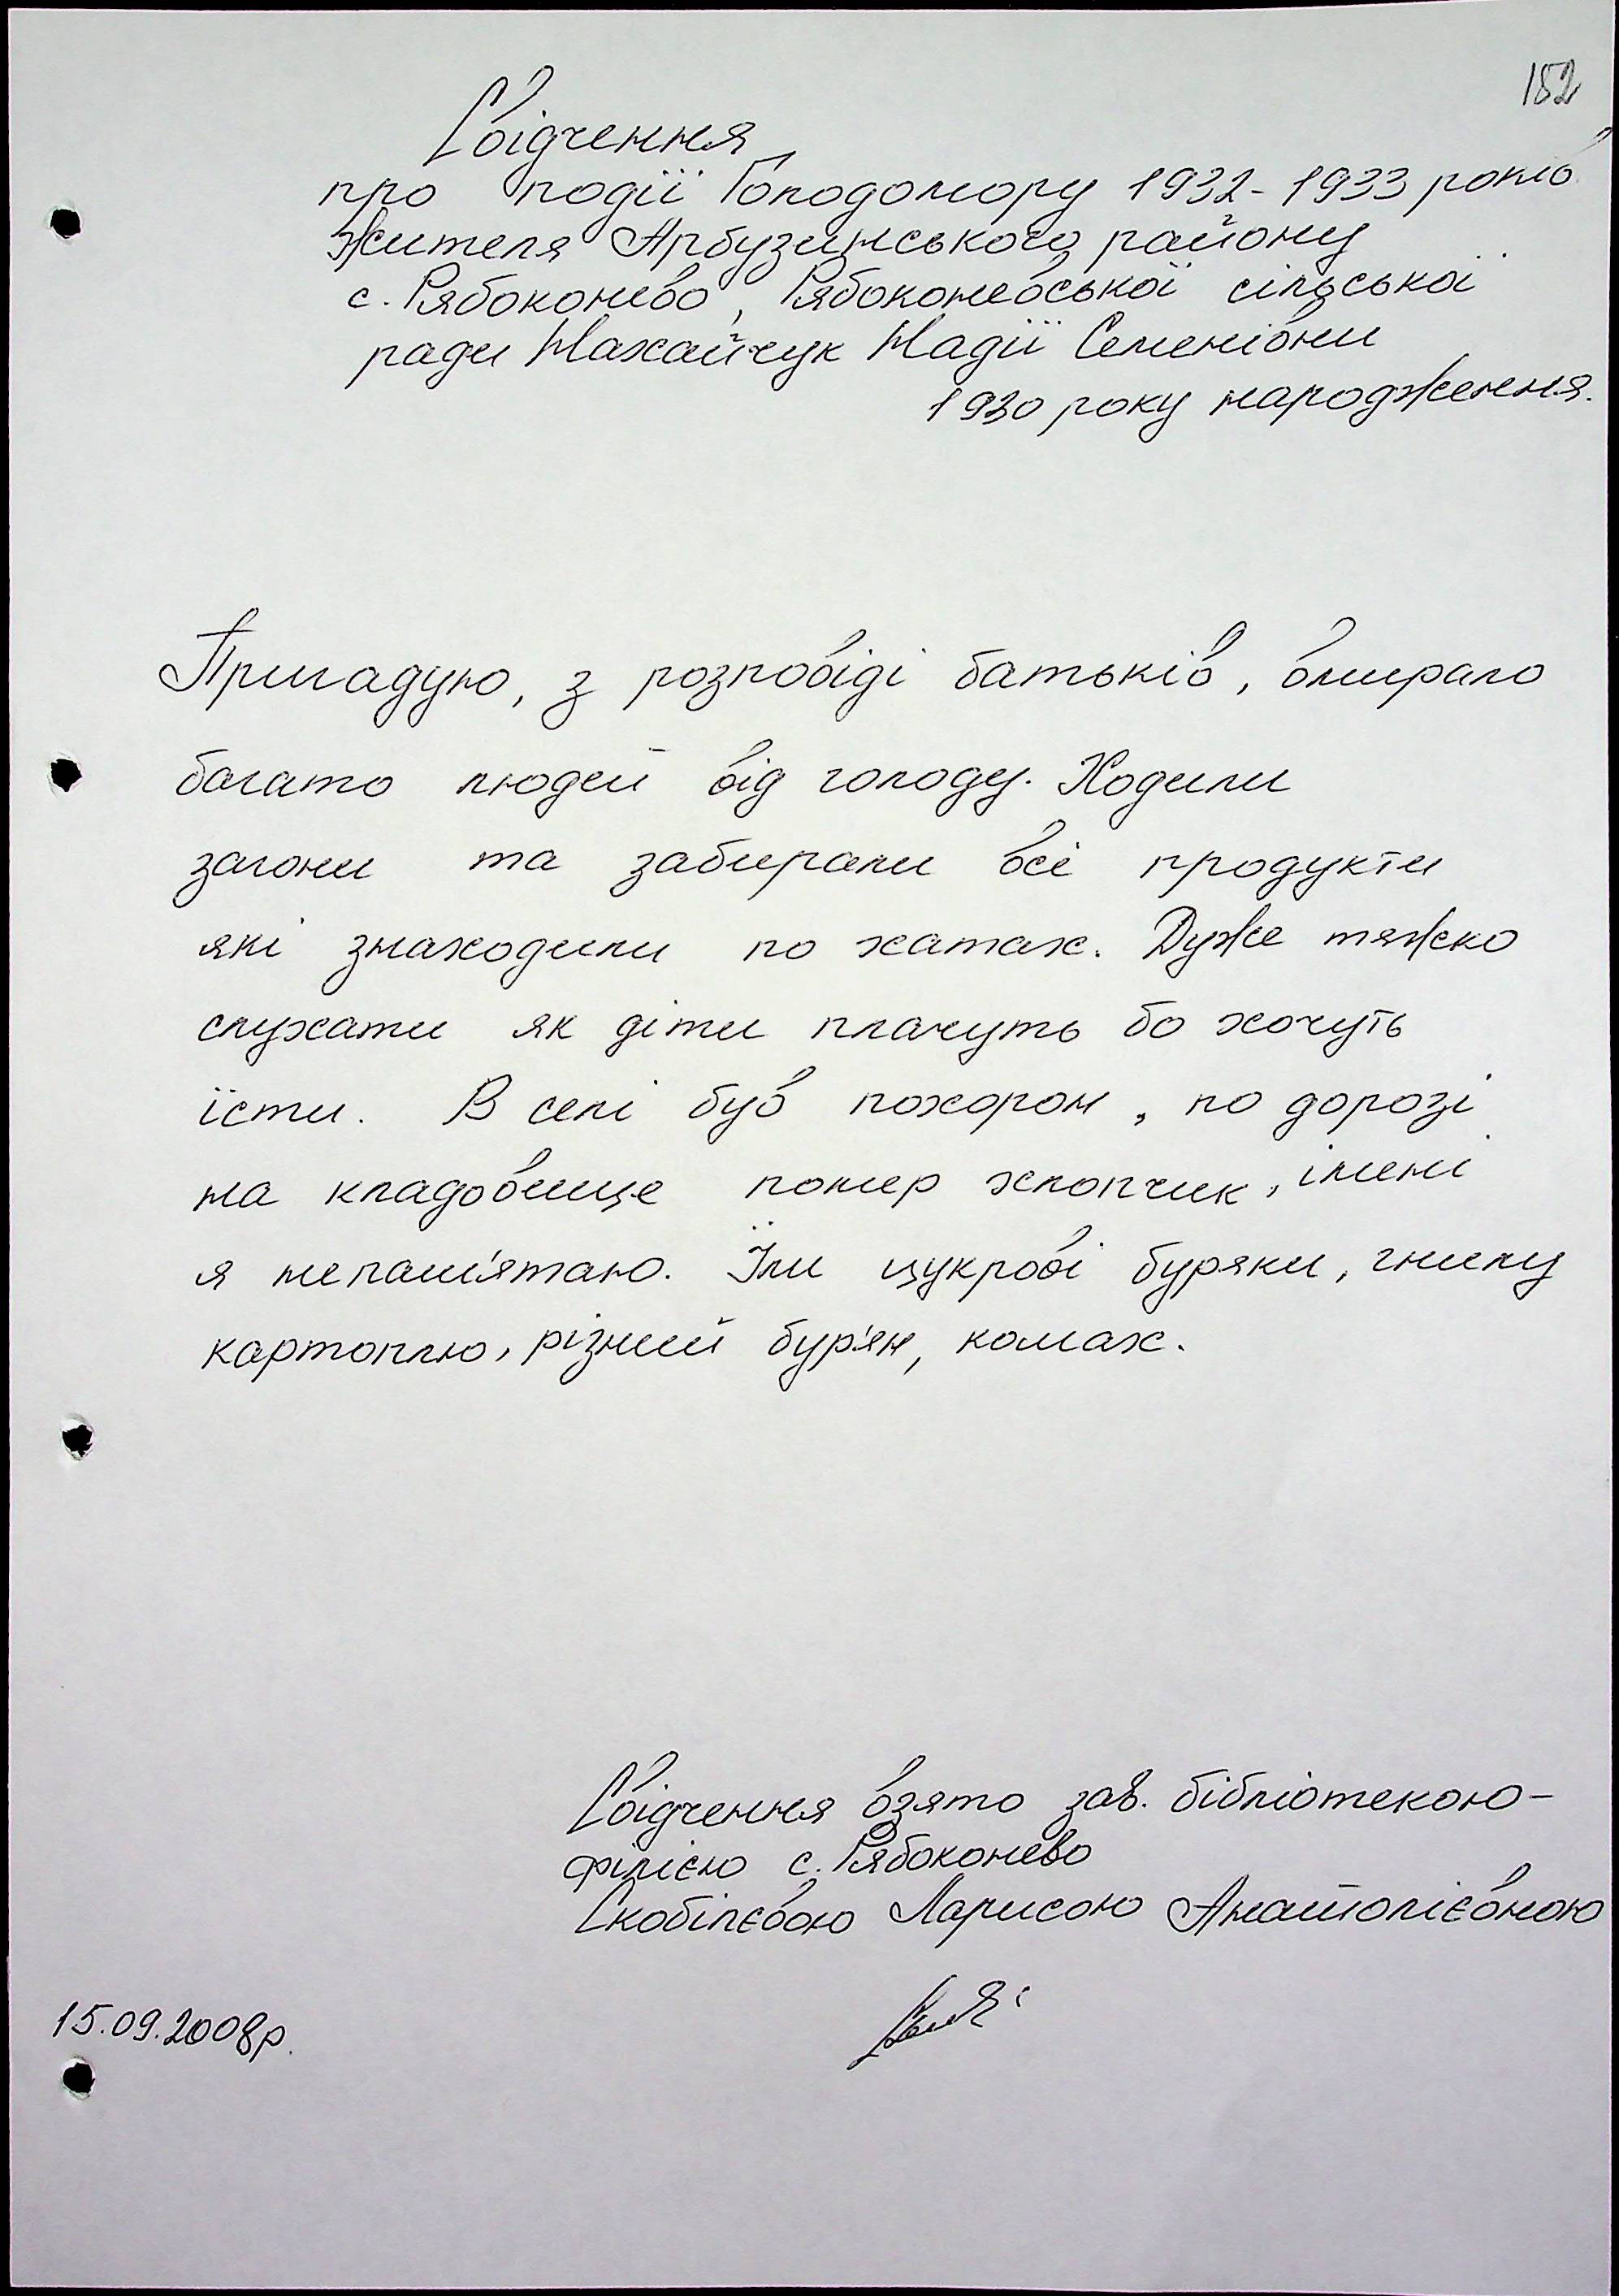 152
Свідчення
про події Голодомору 1932-1933 років
жителя Арбузинського району
с. Рябоконево, Рябоконевської сільської
ради Нахайчук Надії Семенівни
1930 року народження.
Пригадую, з розповіді батьків, вмирало
багато людей від голоду. Ходили
загони та забирали всі продукти
які знаходили по хатах. Дуже тяжко
слухати як діти плачуть бо хочуть
їсти. В селі був похорон, по дорозі
на кладовище помер хлопчик, імені
я непам'ятаю. Їли цукрові буряки, гнилу
картоплю, різний бур'ян, комах.
Свідчення взято зав. бібліотекою-
філією с. Рябоконево
Скобілєвою Ларисою Анатолієвною
15.09.2008р.